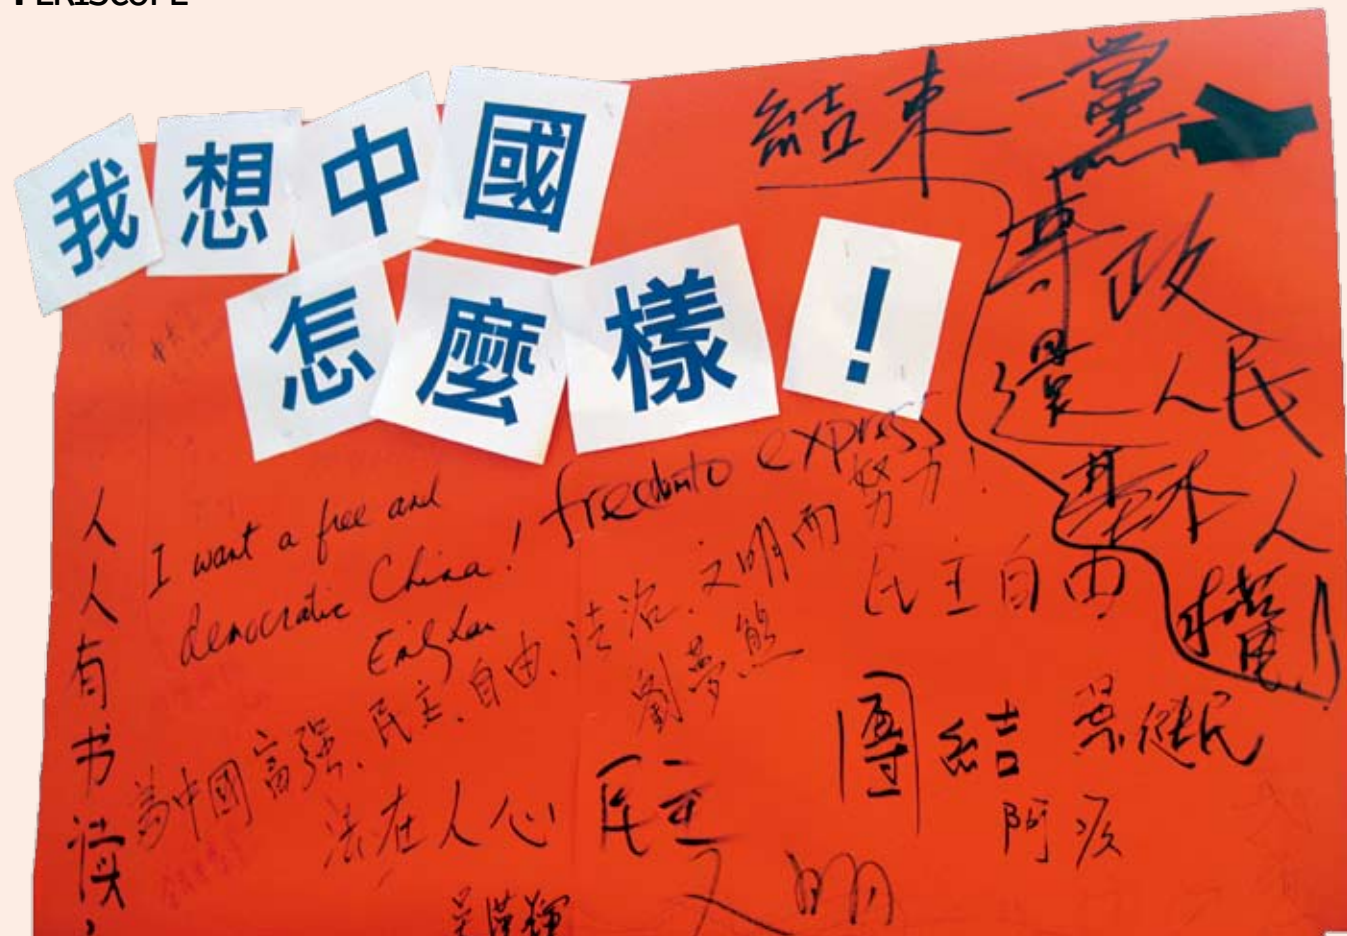 PERISCOPE
我想中國
怎麼樣！
結束一黨
專政
還人民
基本人
權！
I want a free and
democratic China!
freedom to express
為中國富强、民主、自由、法治、文明而努力！
劉夢熊
民主自由
人人有书读，
法在人心
民主
文明
團結
葉健民